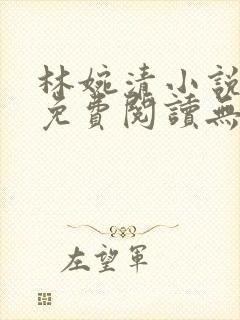 林婉清小說
免費閱讀無
左望軍